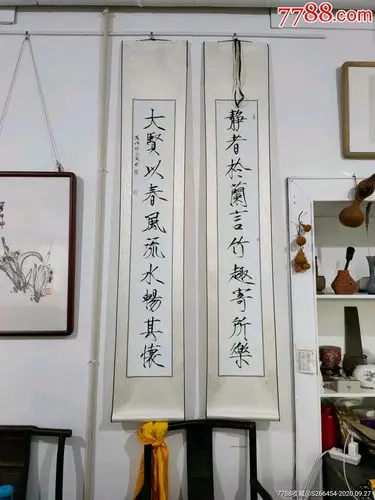 7788.com
静者於蘭言竹趣寄所樂
大賢以春風流水暢其懷
7788收藏@S266454-2020.09.27